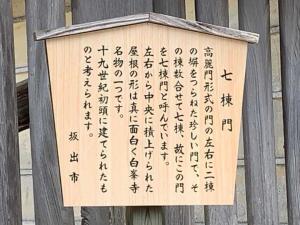 七棟門
高麗門形式の門の左右に二棟
の塀をつらねた珍しい門で、そ
の棟数合せて七棟、故にこの門
を七棟門と呼んでいます。
左右から中央に積上げられた
屋根の形は真に面白く白峯寺
名物の一つです。
十九世紀初頭に建てられたも
のと考えられます。
坂出市